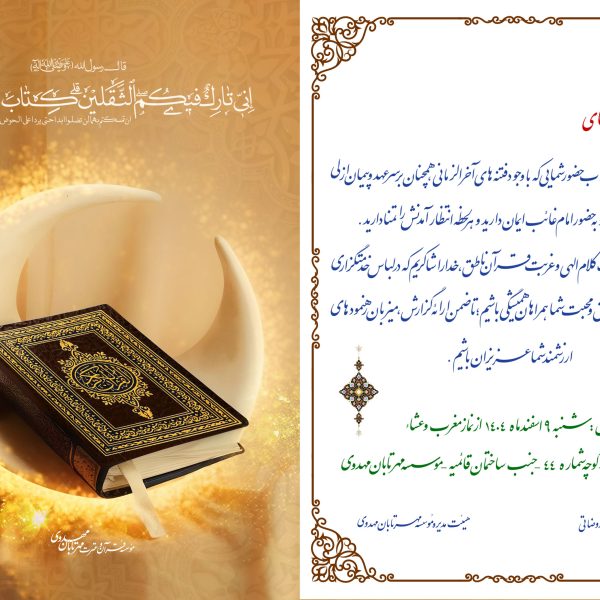 قال رسول الله
إنی تارك فیكم الثقلین كتاب
ان تمسکتم بهما لن تضلوا ابدا حتی یردا علی الحوض
موسسه قرآن و عترت مهر تابان مهدوی
ب حضور شمایی که با وجود فتنه های آخرالزمانی همچنان بر سر عهد و پیمان ازلی
به حضور امام غائب ایمان دارید و هر لحظه انتظار آمدنش را تمنا دارید .
کلام الهی و غربت قرآن ناطق ، خدا را شاکریم که در لباس خدمتگزاری
و محبت شما همراهان همیشگی باشیم ؛ تا ضمن ارائه گزارش ، میزبان رهنمودهای
ارزشمند شما عزیزان باشیم .
: شنبه ۹ اسفند ماه ۱۴۰۴ از نماز مغرب و عشاء
کوچه شماره ۴۴ - جنب ساختمان قائمیه - موسسه مهر تابان مهدوی
هیئت مدیره موسسه مهر تابان مهدوی